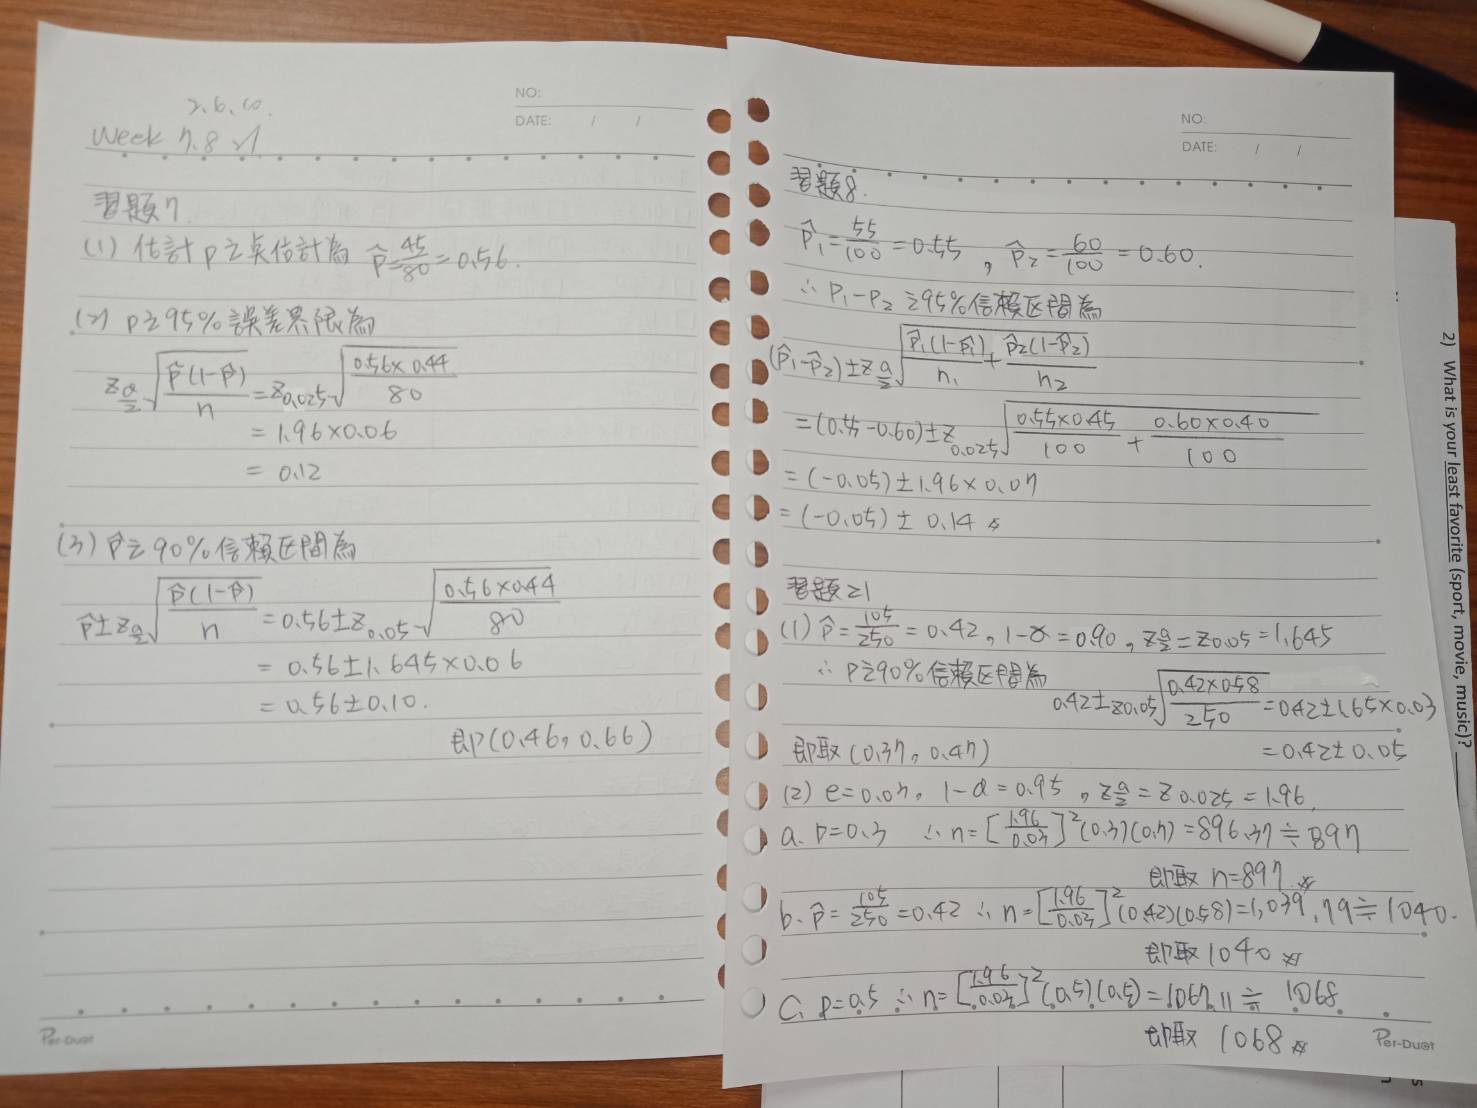 NO:
DATE: / /
7.6.10.
Week 7.8 21
習題7
(1) 估計p之点估計為 p̂=45/80=0.56.
(2) p之95%誤差界限為
z_{α/2}√(p̂(1-p̂)/n)=z_{0.025}√(0.56×0.44/80)
=1.96×0.06
=0.12
(3) p̂之90%信賴区間為
p̂±z_{α/2}√(p̂(1-p̂)/n)=0.56±z_{0.05}√(0.56×0.44/80)
=0.56±1.645×0.06
=0.56±0.10.
即(0.46,0.66)
Per-Duet
NO:
DATE: / /
習題8.
p̂₁=55/100=0.55, p̂₂=60/100=0.60.
∴P₁-P₂之95%信賴区間為
(p̂₁-p̂₂)±z_{α/2}√(p̂₁(1-p̂₁)/n₁+p̂₂(1-p̂₂)/n₂)
=(0.55-0.60)±z_{0.025}√(0.55×0.45/100+0.60×0.40/100)
=(-0.05)±1.96×0.07
=(-0.05)±0.14
習題21
(1) p̂=105/250=0.42, 1-α=0.90, z_{α/2}=z_{0.05}=1.645
∴P之90%信賴区間為
0.42±z_{0.05}√(0.42×0.58/250)=0.42±1.65×0.03
即取(0.37,0.47) =0.42±0.05
(2) e=0.03, 1-α=0.95, z_{α/2}=z_{0.025}=1.96.
a. p=0.3 ∴n=[1.96/0.03]²(0.3)(0.7)=896.37≒897
即取 n=897
b. p̂=105/250=0.42 ∴n=[1.96/0.03]²(0.42)(0.58)=1,039.79≒1040.
即取1040
C. p=0.5 ∴n=[1.96/0.03]²(0.5)(0.5)=1067.11≒1068.
即取 1068
Per-Duet
2) What is your least favorite (sport, movie, music)?